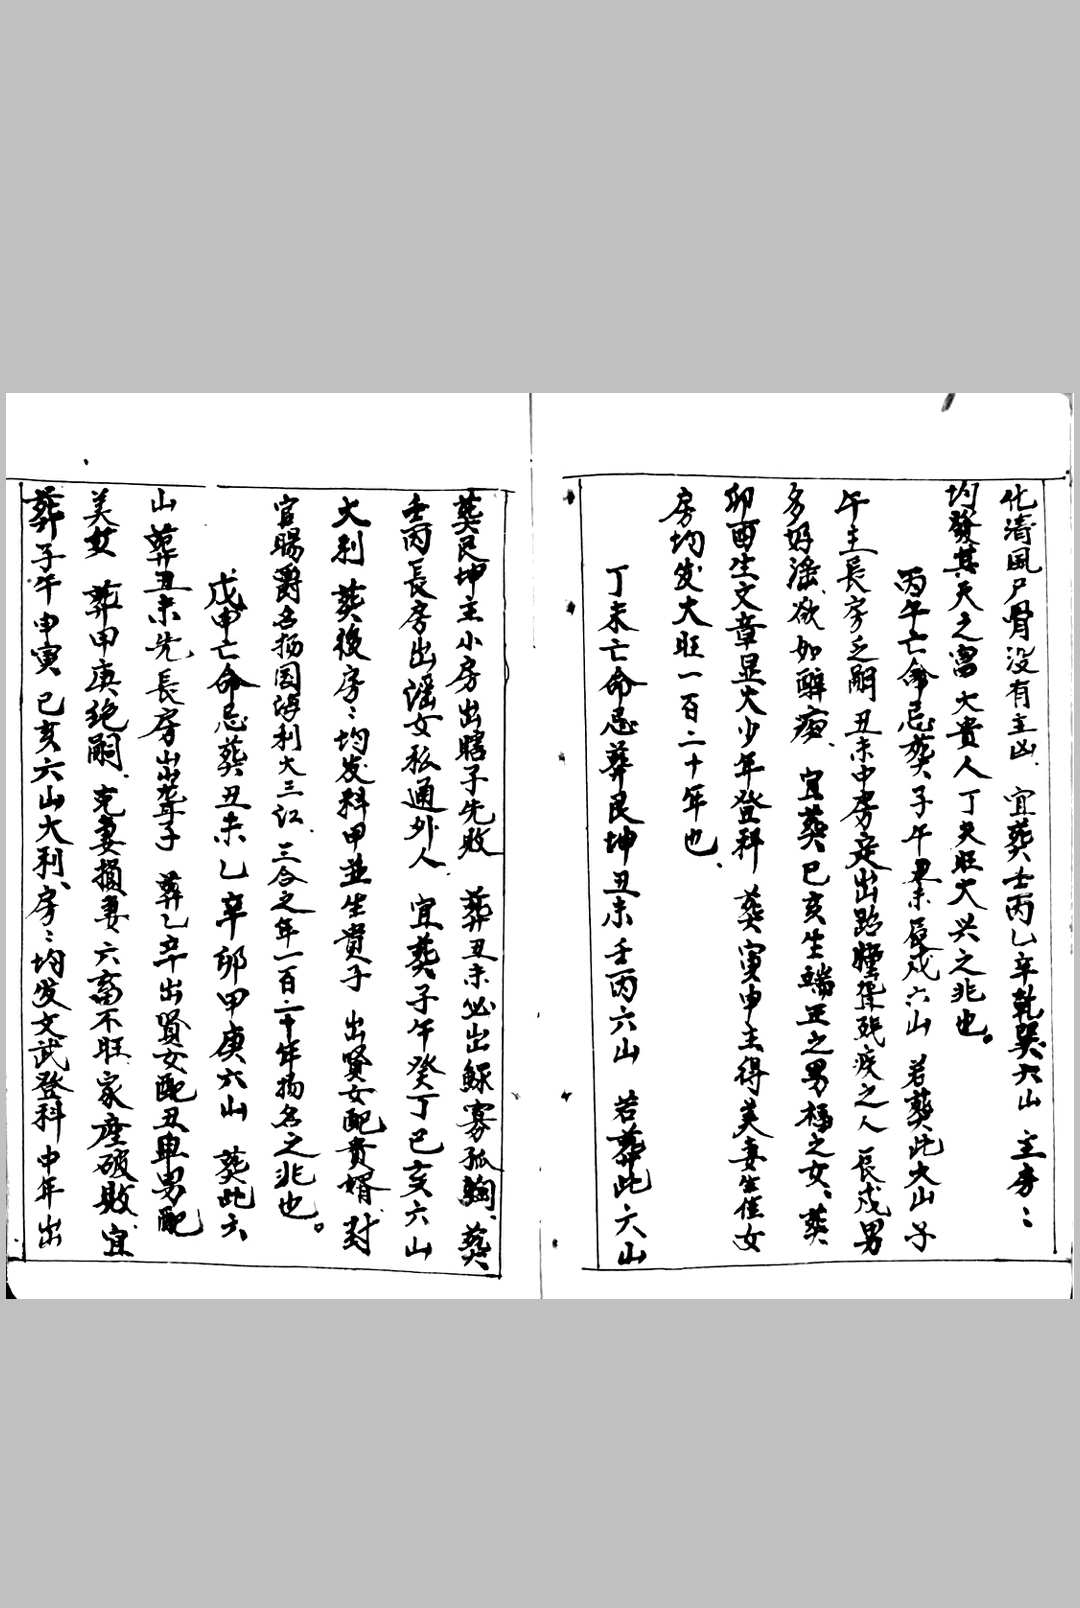 化清風尸骨没有主凶 宜葬壬丙乙辛乾巽六山 主房〻
均發其天之富大貴人丁大旺大兴之兆也。
丙午亡命忌葬子午丑未辰戌六山 若葬此六山子
午主長房乏嗣丑未中房定出跎残疾之人 辰戌男
多好淫欲如醉痴 宜葬巳亥生端正之男福之女、葬
卯酉生文章显大少年登科 葬寅申主得美妻生佳女
房均发大旺一百二十年也
丁未亡命忌葬艮坤丑未壬丙六山 若葬此六山
葬艮坤主小房出瞎子先敗 葬丑未必出鰥寡孤 葬
壬丙長房出謠女私通外人 宜葬子午癸丁巳亥六山
大利 葬後房〻均发科甲並生貴子 出賢女配貴婿 對
官賜爵名扬国海利大三江 三合之年一百二十年揚名之兆也。
戊申亡命忌葬丑未乙辛卯甲庚六山 葬此六
山 葬丑未先長房出聋子 葬乙辛出賢女配丑男配
美女 葬甲庚绝嗣 克妻損妻六畜不旺家產破敗 宜
葬子午申寅巳亥六山大利房〻均发文武登科中年出